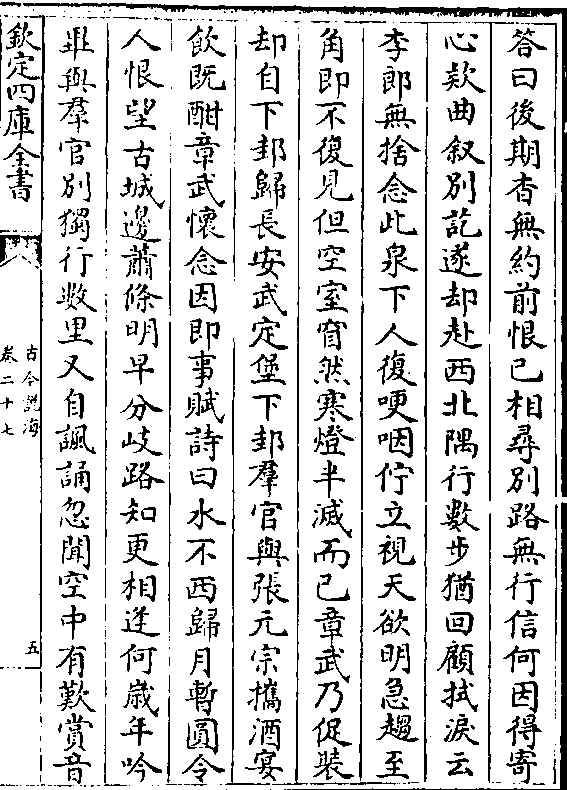 答曰後期杳無約前恨已相尋別路無行信何因得寄
心欵曲叙別訖遂却赴西北隅行數步猶回顧拭淚云
李郎無捨念此泉下人復哽咽佇立視天欲明急趨至
角即不復見但空室窅然寒燈半滅而已章武乃促裝
却自下邽歸長安武定堡下邽羣官與張元宗攜酒宴
飲既酣章武懷念因即事賦詩曰水不西歸月暫圓令
人恨望古城邊蕭條明早分岐路知更相逢何歲年吟
畢與羣官別獨行數里又自諷誦忽聞空中有歎賞音
欽定四庫全書
古今説海
卷二十七
五